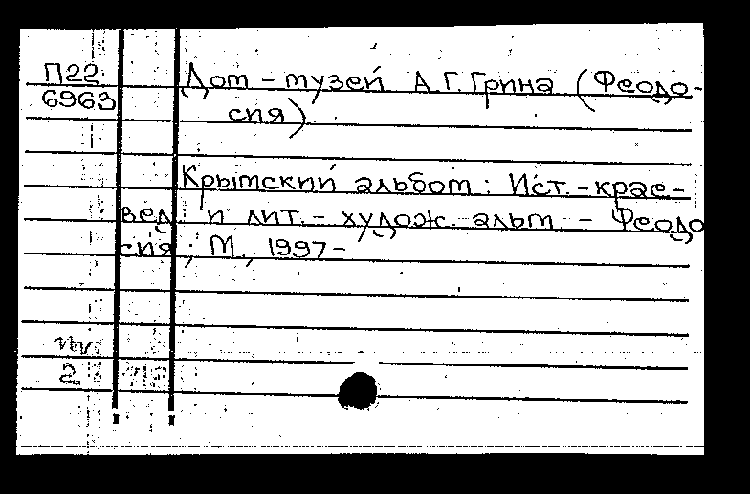 П22 Дом-музей А.Г. Грина (Феодо-
6963 сия)
Крымский альбом: Ист.-крае-
вед. и лит.-худож. альм. - Феодо
сия; М., 1997-
2